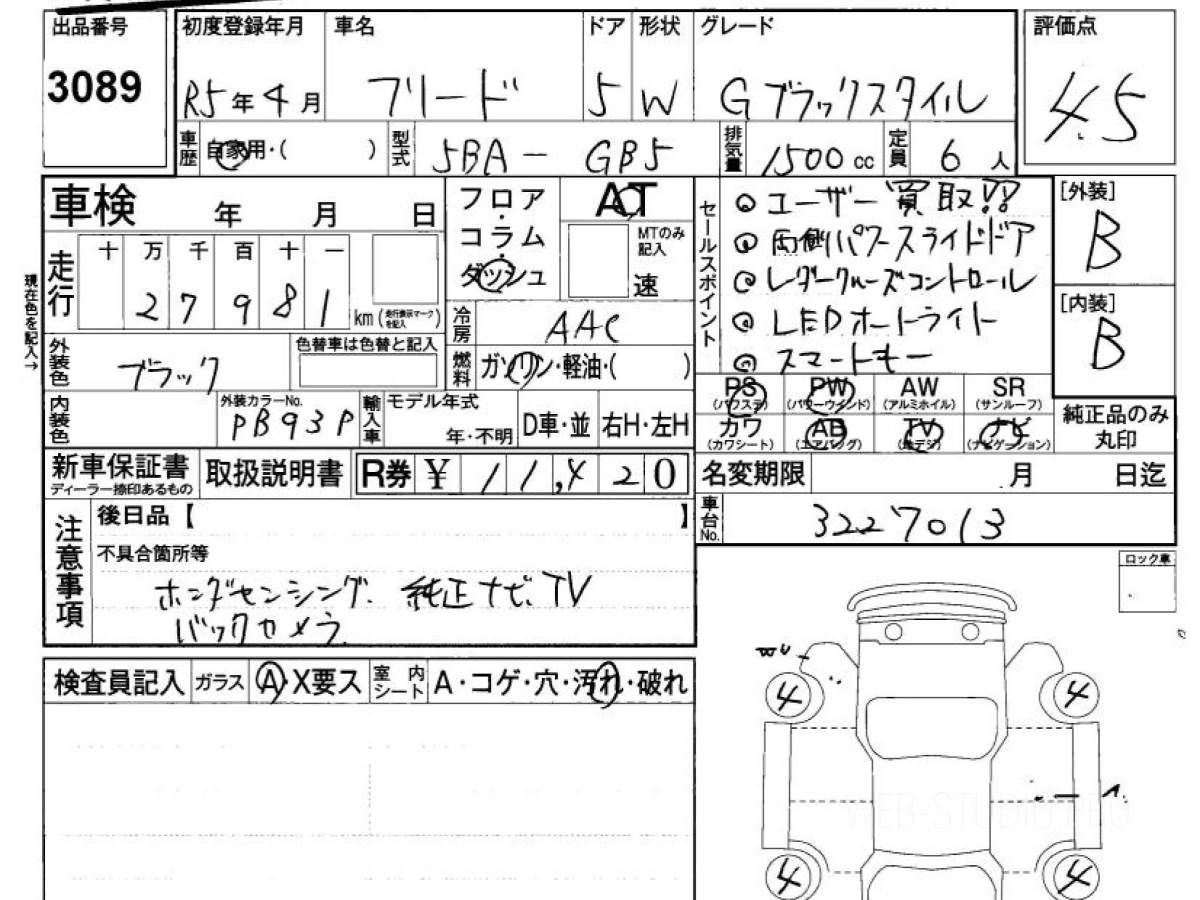 出品番号 初度登録年月 車名 ドア 形状 グレード 評価点
3089 R5年4月 フリード 5 W Gブラックスタイル 4.5
車歴 自家用・( ) 型式 5BA - GB5 排気量 1500 cc 定員 6 人
車検 年 月 日 フロア・コラム・ダッシュ AT MTのみ記入 速
セールスポイント
◎ユーザー買取!!
◎両側パワースライドドア
◎レーダークルーズコントロール
◎LEDオートライト
◎スマートキー
[外装] B
[内装] B
現在色を記入→
走行 十 万 千 百 十 一
2 7 9 8 1 km (走行表示マークを記入)
冷房 AAC
外装色 ブラック 色替車は色替と記入 燃料 ガソリン・軽油・( )
PS (パワステ) PW (パワーウインド) AW (アルミホイル) SR (サンルーフ)
カワ (カワシート) AB (エアバッグ) TV (地デジ) ナビ (ナビゲーション)
純正品のみ丸印
内装色 外装カラーNo. PB93P 輸入車 モデル年式 年・不明 D車・並 右H・左H
新車保証書 ディーラー捺印あるもの 取扱説明書 R券 ¥ 11,420
名変期限 月 日迄
車台No. 3227013
注意事項 後日品【 】
不具合箇所等
ホンダセンシング. 純正ナビ. TV
バックカメラ.
ロック車
検査員記入 ガラス A・X要ス 室内シート A・コゲ・穴・汚れ・破れ
4 4
WEB-STUDIO.PRO
4 4